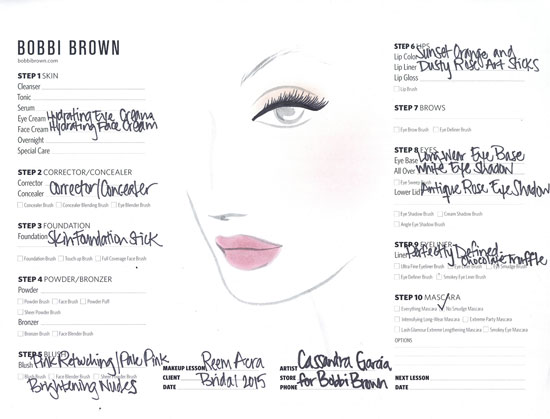 BOBBI BROWN
bobbibrown.com
STEP 1 SKIN
Cleanser
Tonic
Serum
Eye Cream Hydrating Eye Cream
Face Cream Hydrating Face Cream
Overnight
Special Care
STEP 2 CORRECTOR/CONCEALER
Corrector
Concealer Corrector/Concealer
Concealer Brush Concealer Blending Brush Eye Blender Brush
STEP 3 FOUNDATION
Foundation Skin Foundation Stick
Foundation Brush Touch up Brush Full Coverage Face Brush
STEP 4 POWDER/BRONZER
Powder
Powder Brush Face Brush Powder Puff
Sheer Powder Brush
Bronzer
Bronzer Brush Face Blender
STEP 5 BLUSH
Blush Pink Retouching/Pale Pink
Blush Brush
Brightening Nudes
MAKEUP LESSON Reem Acra
CLIENT Bridal 2015
DATE
ARTIST Cassandra Garcia
STORE for Bobbi Brown
PHONE
STEP 6 LIPS
Lip Color Sunset Orange and
Lip Liner Dusty Rose Art Sticks
Lip Gloss
Lip Brush
STEP 7 BROWS
Eye Brow Brush Eye Definer Brush
STEP 8 EYES
Eye Base Long-Wear Eye Base
All Over White Eye Shadow
Eye Sweep Brush
Lower Lid Antique Rose Eye Shadow
Eye Shadow Brush Cream Shadow Brush
Angle Eye Shadow Brush
STEP 9 EYELINER
Liner Perfectly Defined
Chocolate Truffle
Ultra Fine Eyeliner Brush Eye Liner Brush Eye Smudge Brush
Eye Definer Brush Smokey Eye Liner Brush
STEP 10 MASCARA
Everything Mascara No Smudge Mascara
Intensifying Long-Wear Mascara Extreme Party Mascara
Lash Glamour Extreme Lengthening Mascara Smokey Eye Mascara
OPTIONS
NEXT LESSON
DATE